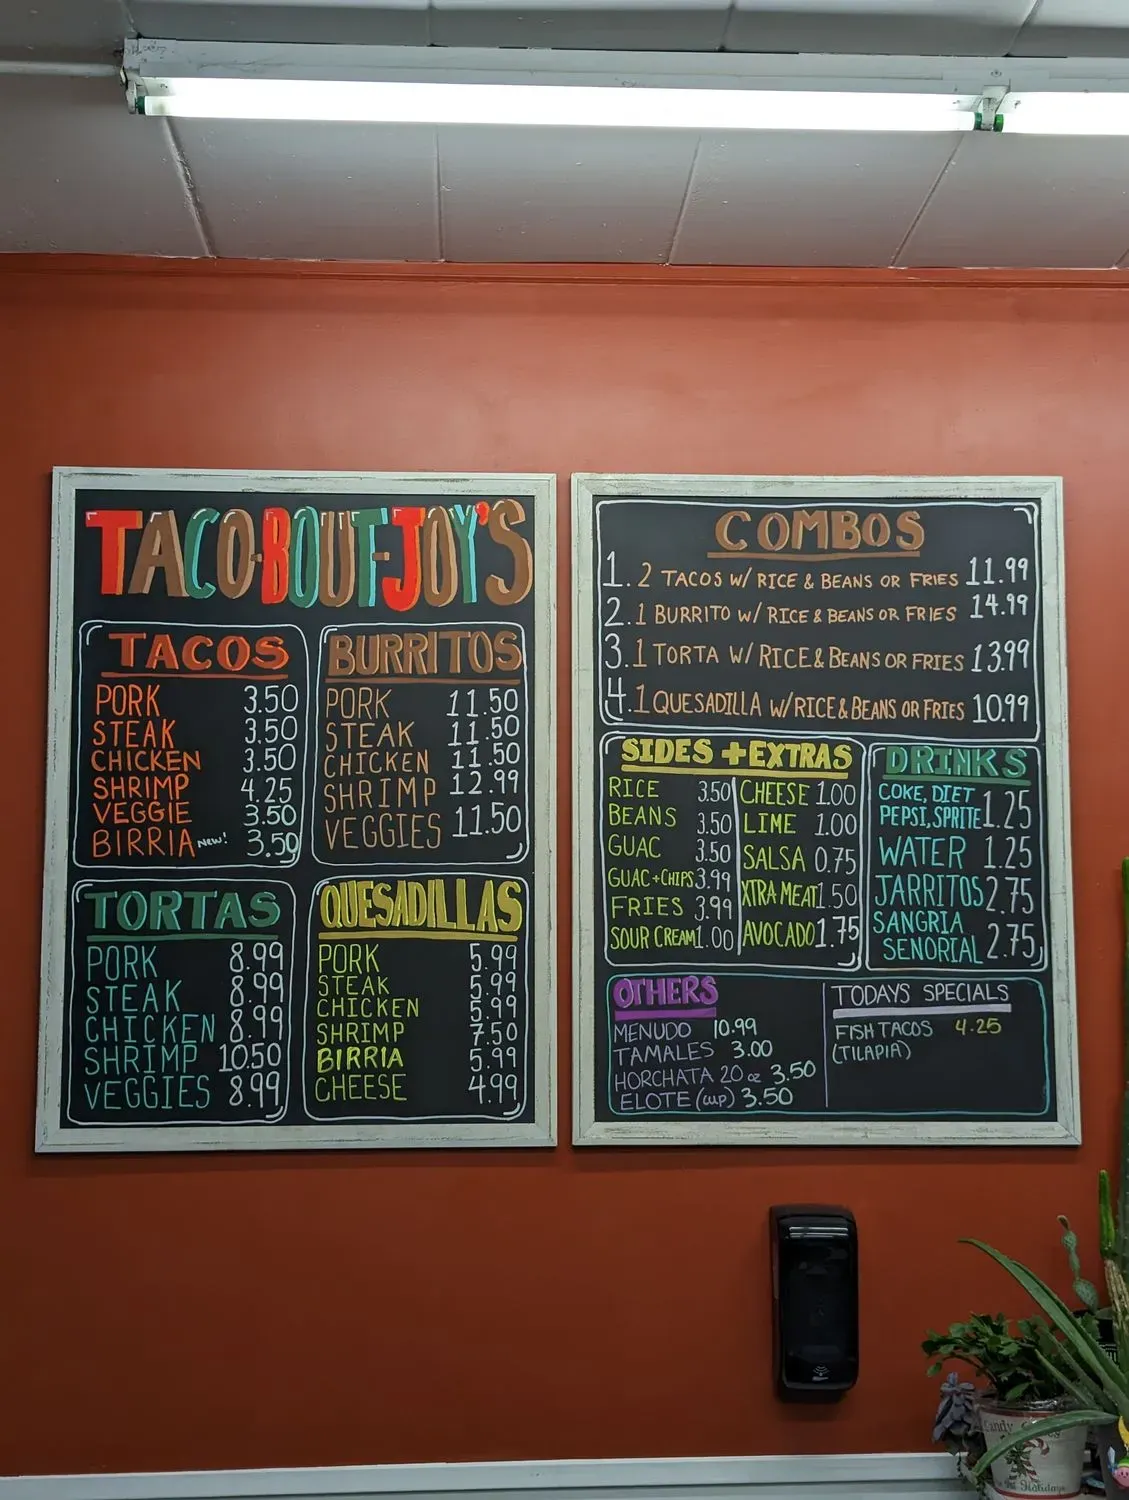 TACO-BOUT-JOY'S
TACOS
PORK 3.50
STEAK 3.50
CHICKEN 3.50
SHRIMP 4.25
VEGGIE 3.50
BIRRIA NEW! 3.50
BURRITOS
PORK 11.50
STEAK 11.50
CHICKEN 11.50
SHRIMP 12.99
VEGGIES 11.50
TORTAS
PORK 8.99
STEAK 8.99
CHICKEN 8.99
SHRIMP 10.50
VEGGIES 8.99
QUESADILLAS
PORK 5.99
STEAK 5.99
CHICKEN 5.99
SHRIMP 7.50
BIRRIA 5.99
CHEESE 4.99
COMBOS
1. 2 TACOS W/ RICE & BEANS OR FRIES 11.99
2. 1 BURRITO W/ RICE & BEANS OR FRIES 14.99
3. 1 TORTA W/ RICE & BEANS OR FRIES 13.99
4. 1 QUESADILLA W/ RICE & BEANS OR FRIES 10.99
SIDES + EXTRAS
RICE 3.50
BEANS 3.50
GUAC 3.50
GUAC + CHIPS 3.99
FRIES 3.99
SOUR CREAM 1.00
CHEESE 1.00
LIME 1.00
SALSA 0.75
XTRA MEAT 1.50
AVOCADO 1.75
DRINKS
COKE, DIET
PEPSI, SPRITE 1.25
WATER 1.25
JARRITOS 2.75
SANGRIA
SENORIAL 2.75
OTHERS
MENUDO 10.99
TAMALES 3.00
HORCHATA 20 oz 3.50
ELOTE (cup) 3.50
TODAYS SPECIALS
FISH TACOS 4.25
(TILAPIA)
Holidays